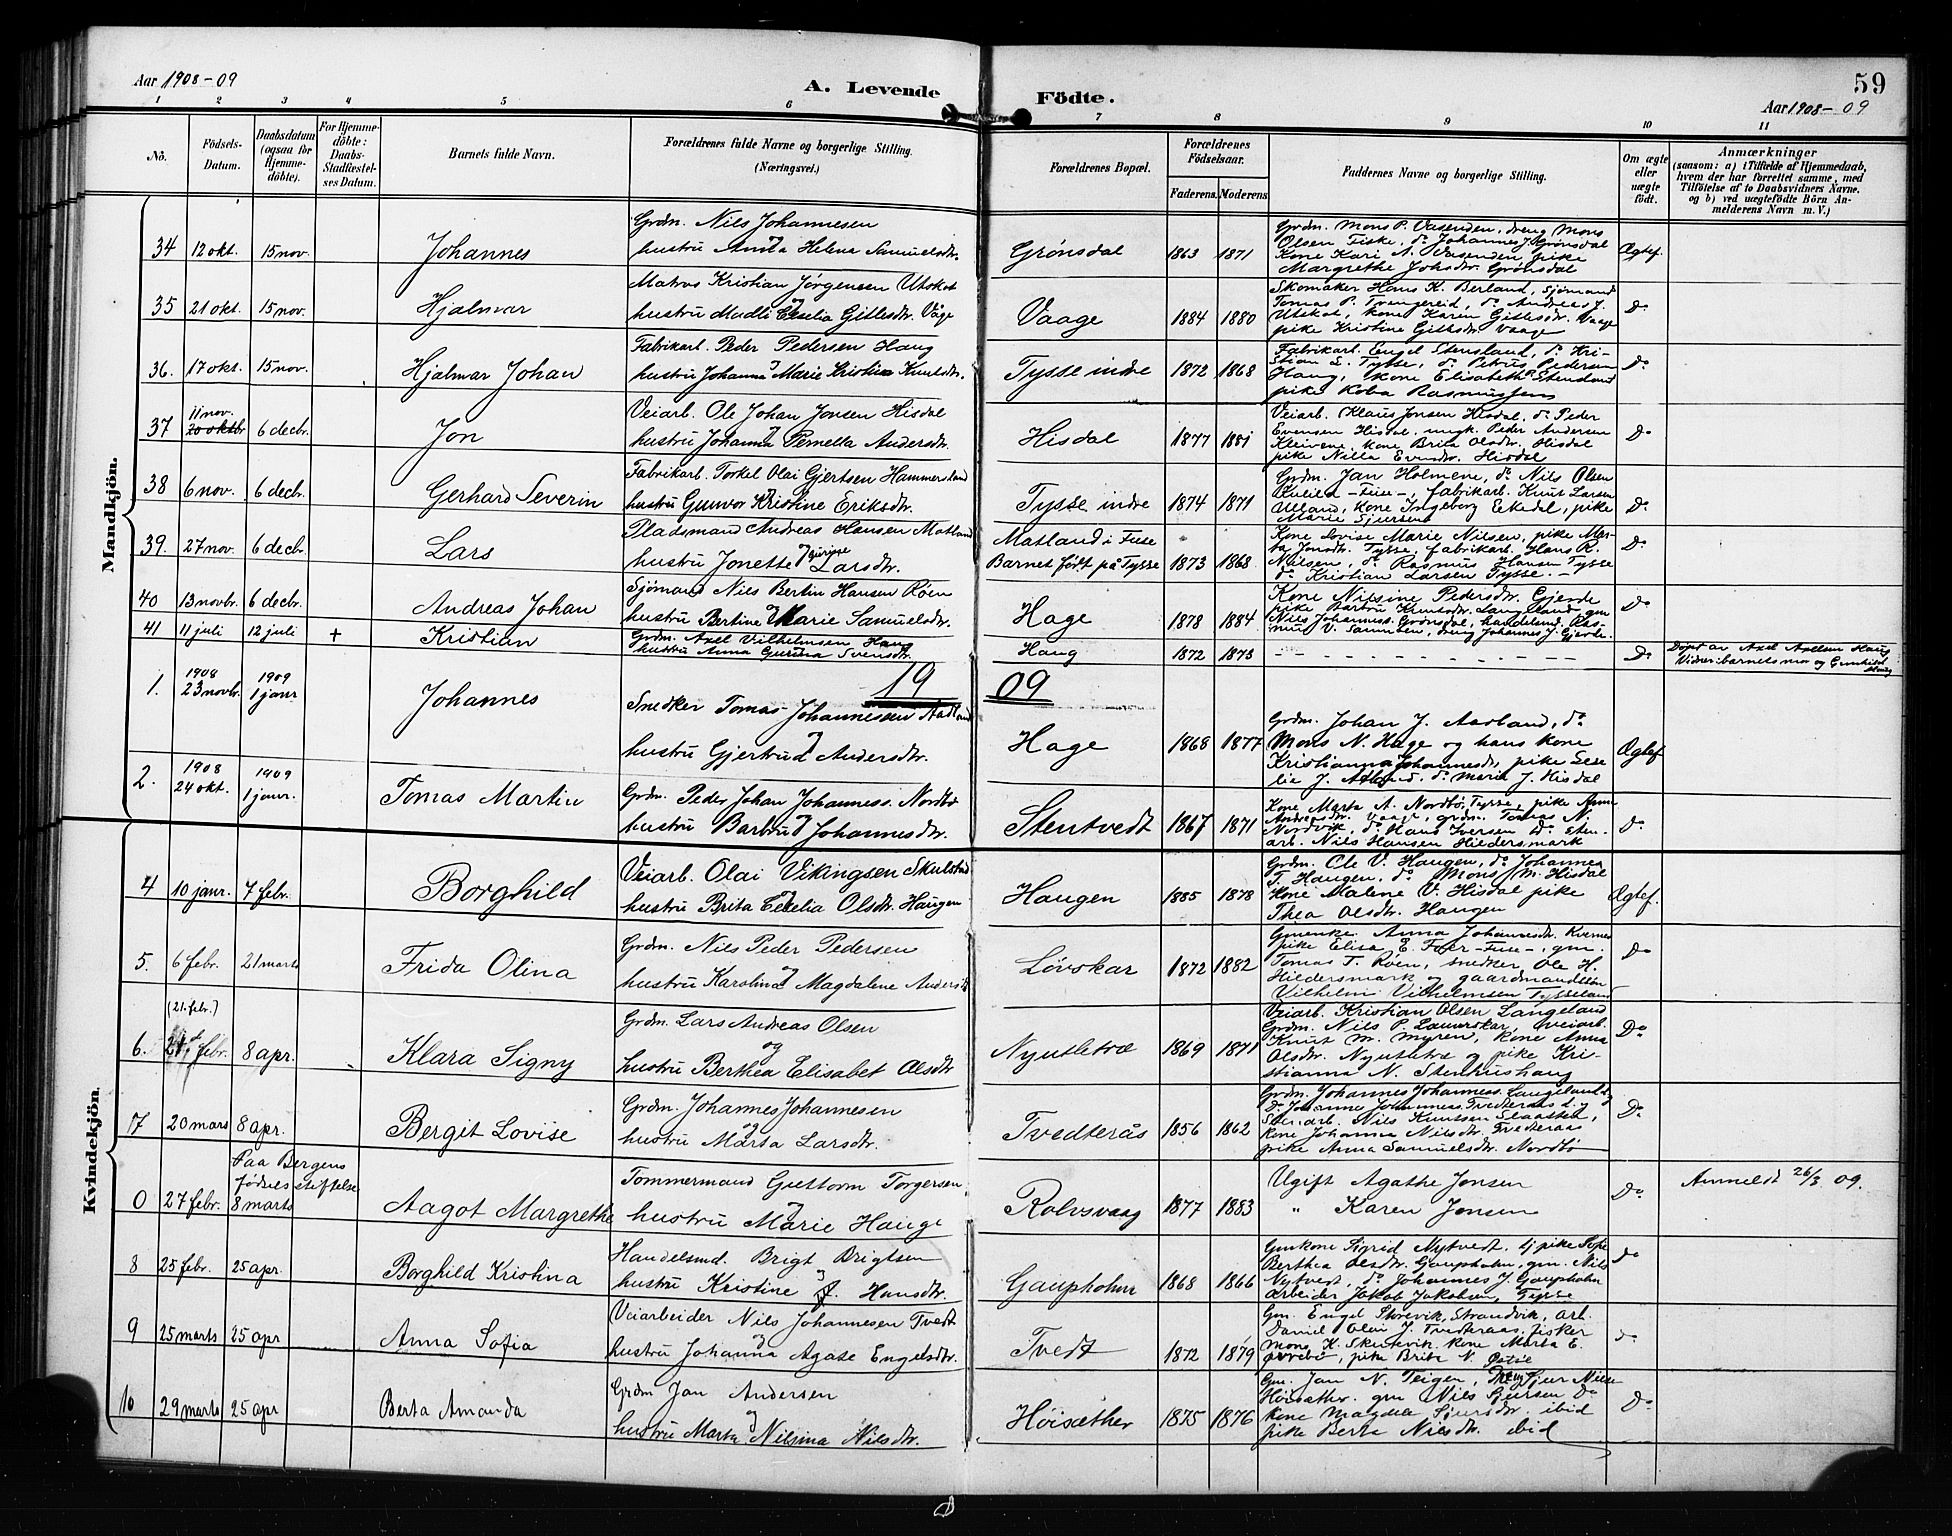 Aar 1908-09
A. Levende Födte.
59
Aar 1908-09
1 2 3 4 5 6 7 8 9 10 11
No.
Födsels-Datum.
Daabsdatum (ogsaa for Hjemmedöbte).
For Hjemmedöbte: Daabs-Stadfæstelses Datum.
Barnets fulde Navn.
Forældrenes fulde Navne og borgerlige Stilling. (Næringsvei.)
Forældrenes Bopæl.
Forældrenes Födselsaar.
Faderens. Moderens.
Faddernes Navne og borgerlige Stilling.
Om ægte eller uægte födt.
Anmærkninger
(saasom: a) i Tilfælde af Hjemmedaab, hvem der har forrettet samme, med Tilföielse af to Daabsvidners Navne. og b) ved uægtefödte Börn Anmelderens Navn m. V.)
Mandkjön.
34 12 okt. 15 nov. Johannes
Grdm. Nils Johannesen
hustru Anna Helena Samuelsdtr.
Grønsdal 1863 1871
Grdm. Mons P. Vasenden, dreng Mons
Olsen Fiske, do Johannes J. Grønsdal
Kone Kari A. Vasenden pike
Margrethe Johsdtr. Grønsdal
Ægtef.
35 21 okt. 15 nov. Hjalmar
Matros Kristian Jørgensen Utskot
hustru Madli Cecelia Gittlesdtr. Våge
Vaage 1884 1880
Skomaker Hans K. Berland, Sjömand
Tomas P. Tvengereid, do Andreas J.
Utskot, kone Karen Githsdr. Vaage
pike Kristine Githsdr. Vaage
Do
36. 17 okt. 15 nov. Hjalmar Johan
Fabrikarb. Peder Pedersen Haug
hustru Johanna Marie Kristina Knutsdtr.
Tysse indre 1872 1868
Fabrikarb. Engel Stensland, do Kri-
stian L. Tysse, do Petrus Pedersen
Haug, kone Elisabeth Stensland
pike Koba Rasmussen
Do
37 11 nov. 20 oktbr 6 decbr. Jon
Veiarb. Ole Johan Jonsen Hisdal
hustru Johanna Pernella Andersdtr.
Hisdal 1877 1881
Veiarb. Klaus Jonsen Hisdal, do Peder
Evensen Hisdal, ungk. Peder Andersen
Kleivene, kone Brita Olsdtr. Hisdal
pike Nilla Evensdtr. Hisdal
Do
38 6 nov. 6 decbr. Gerhard Severin
Fabrikarb. Torkel Olai Gjertsen Hammersland
hustru Gunvor Kristine Eriksdtr.
Tysse indre 1874 1871
Grdm. Jan Holmene, do Nils Olsen
Kileid - Fuse -, fabrikarb. Knut Larsen
Ulland, kone Ingeborg Eikedal, pike
Marie Sjursen
Do
39. 27 nov. 6 decbr. Lars
Pladsmand Andreas Hansen Matland
hustru Jonette Gurine Larsdtr.
Matland i Fuse
Barnet født på Tysse 1873 1868
Kone Lovise Marie Nilsen, pike Mar-
ta Jonsdtr. Tysse, fabrikarb. Hans R.
Nilsen, do Rasmus Hansen Tysse
do Kristian Larsen Tysse. -
Do
40 13 novbr. 6 decbr. Andreas Johan
Sjömand Nils Bertin Hansen Röen
hustru Bertine Marie Samuelsdtr.
Hage 1878 1884
Kone Nilsine Pedersdtr. Gjerde
pike Barbru Knutsdtr. Langeland, gm
Nils Johanness. Grønsdal, handelsmd. Ras-
mus V. Samnöen, dreng Johannes J. Gjerde
Do
41 11 juli 12 juli + Kristian
Grdm. Axel Vilhelmsen Haug
hustru Anna Gurina Svensdtr.
Haug 1872 1873
Do
Døpt av Axel Axelsen Haug
Vidner: barnets mor og Gunhild Haug
1909
1. 1908 23 novbr. 1909 1 janr Johannes
Snedker Tomas Johannessen Aadland
hustru Gjertrud Andersdtr.
Hage 1868 1877
Grdm. Johan J. Aarland, do
Mons N. Hage og hans kone
Kristianna Johannesdr, pike Cese-
lie J. Adland, do Maria J. Hisdal
Ægtef
2. 1908 24 okt. 1909 1 janr. Tomas Martin
Grdm. Peder Johan Johanness. Nordbö
hustru Barbru Johannesdtr.
Stentvedt 1867 1871
Kone Marta A. Nordbö, Tysse, pike Anna
Andreasdtr. Vaage, grdm. Tomas N.
Nordvik, do Hans Iversen do Sten-
arb. Nils Hansen Hiedersmark
Do
Kvindekjön.
4 10 janr. 7 febr. Borghild
Veiarb. Olai Vikingsen Skulstad
hustru Brita Cecelia Olsdtr. Haugen
Haugen 1885 1878
Grdm. Ole V. Haugen, do Johannes
T. Haugen, do Mons M. Hisdal
Kone Malene V. Hisdal pike
Thea Olsdtr. Haugen
Ægtef.
5. 6 febr. 21 marts Frida Olina
Grdm. Nils Peder Pedersen
hustru Karolina Magdalene Andersdtr
Lövskar 1872 1882
Gmenke Anna Johannesdtr. Kvernes
pike Elisa E. - Fuse -, gm.
Tomas T. Röen, snedker Ole H.
Hiedersmark og gaardmandssön
Vilhelm Vilhelmsen Tysseland
Do
(21. febr.)
6. febr. 8 apr. Klara Signy
Grdm. Lars Andreas Olsen
og
hustru Berthea Elisabet Olsdtr
Nyutletræ 1869 1871
Veiarb. Kristian Olsen Langeland
Grdm. Nils P. Lauverskar, veiarb.
Knut M. Myren, kone Anna
Olsdtr. Nyutletræ og pike Kri-
stianna N. Stenhushaug
Do
17 20 mars 8 apr. Bergit Lovise
Grdm. Johannes Johannesen
og
hustru Marta Larsdtr.
Tvedterås 1856 1862
Grdm. Johannes Johanness. Langeland,
do Johannes Johanness. Tvedteraas,
Stenarb. Nils Knutsen Slaatten,
kone Johanna Nilsdtr. Tvedteraas
pike Anna Samuelsdtr. Nordbö
Do
Paa Bergens fødselsstiftelse
0 27 febr. 8 marts Aagot Margrethe
Tommermand Guttorm Torgersen
hustru Marie Hauge
Rolvsvaag 1877 1883
Ugift Agathe Jonsen
" Karen Jensen
Do
Anmeldt 26/3 09.
8 25 febr. 25 apr. Borghild Kristina
Handelsmd. Brigt Brigtsen
hustru Kristine J. Hansdtr.
Gaupholm 1868 1866
Gmkone Sigrid Nytvedt, tj pike Sofie
Berthea Olsdtr. Gaupholm, gm. Nils
Nytvedt, do Johannes J. Gaupholm
arbeider Jakob Jakobsen, Tysse
do
9 25 marts 25 apr Anna Sofia
Veiarbeider Nils Johannesen Tvedt
hustru Johanna Agate Engelsdtr.
Tvedt 1872 1879
Gm. Engel Storevik, Strandvik, arb.
Daniel Olai J. Tvedteraas, fisker
Mons K. Skutevik, kone Marta E.
pike Brita N. Østsie
do
10 29 marts 25 apr Berta Amanda
Grdm Jan Andersen
og
hustru Marta Nilsina Nilsdtr.
Höisæther 1875 1876
Gm. Jan N. Teigen, dreng Sjur Nilse
Höisæther. gm Nils Sjursen do
kone Magdela Sjursdtr. ibid
pike Berta Nilsdtr. ibid
Do